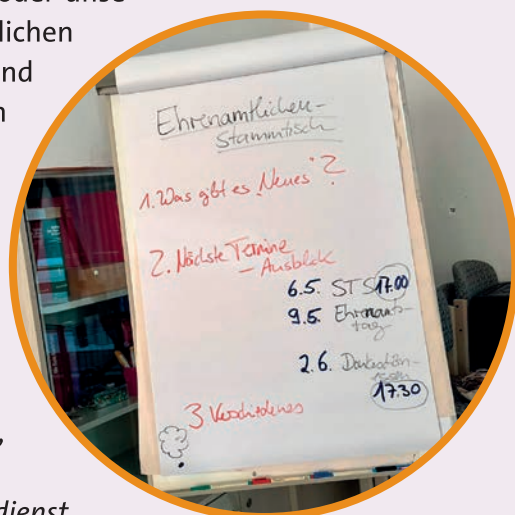 oder unse
lichen
nd
n
Ehrenamtlichen-
Stammtisch
1. Was gibt es "Neues"?
2. Nächste Termine
– Ausblick
6.5. STS 17.00
9.5. Ehrenamts-
tag
2.6. Dankeschön-
essen
17.30
3 Verschiedenes
,
dienst